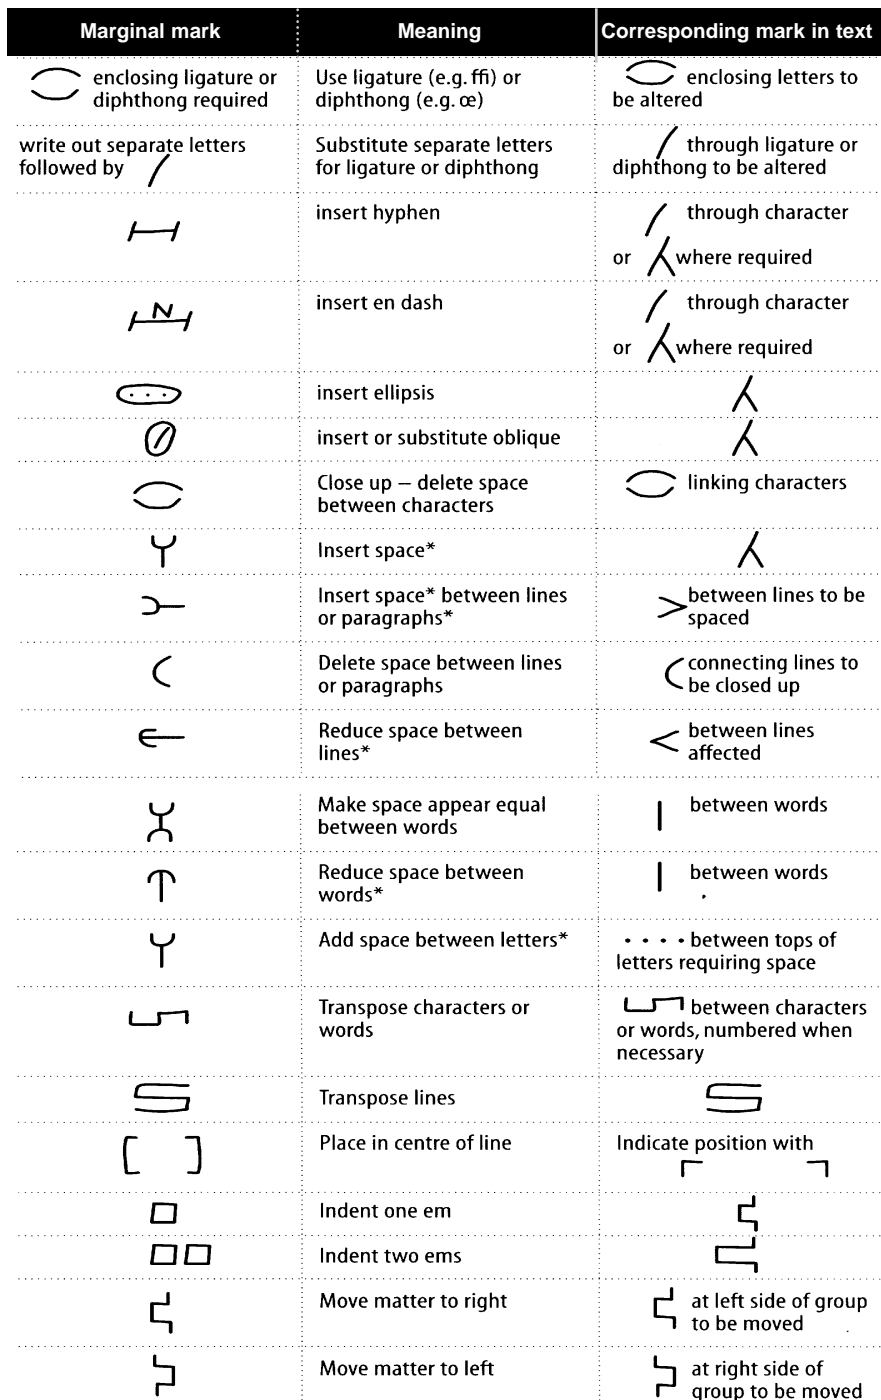 Marginal mark Meaning Corresponding mark in text
enclosing ligature or Use ligature (e.g. ffi) or enclosing letters to
diphthong required diphthong (e.g. œ) be altered
write out separate letters Substitute separate letters through ligature or
followed by for ligature or diphthong diphthong to be altered
insert hyphen through character
or where required
N insert en dash through character
or where required
insert ellipsis
insert or substitute oblique
Close up – delete space linking characters
between characters
Insert space*
Insert space* between lines between lines to be
or paragraphs* spaced
Delete space between lines connecting lines to
or paragraphs be closed up
Reduce space between between lines
lines* affected
Make space appear equal between words
between words
Reduce space between between words
words*
Add space between letters* between tops of
letters requiring space
Transpose characters or between characters
words or words, numbered when
necessary
Transpose lines
Place in centre of line Indicate position with
Indent one em
Indent two ems
Move matter to right at left side of group
to be moved
Move matter to left at right side of
group to be moved